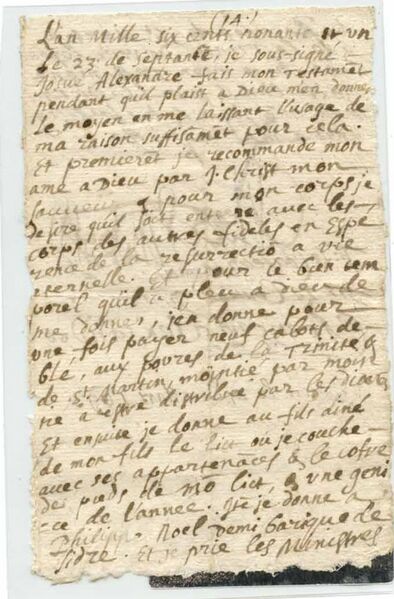 (14)
L'an Mille six cents nonante et un
Le 23 de septante, je sous-signé
Josué Alexandre fais mon Testamēt
pendant qu'il plaist a Dieu m'en donner
Le moyen en me laissant l'usage de
ma raison suffisamēt pour cela.
Et premieret je recommande mon
ame a Dieu par J. Christ mon
sauveur & pour mon corps je
desire qu'il soit enterre avec les
corps des autres fideles en Espe
rence de la resurrectiō a vie
eternelle. Et pour le bien tem
porel qu'il a pleu a Dieu de
me donner, j'en donne pour
une fois payer neuf cabots de
ble, aux povres de la Trinité &
de St. Martin, moytie par moy
tie a estre distribue par les diacr
Et ensuite je donne au fils aine
de mon fils le lict ou je couche
avec ses appartenāces & le cofre
des pieds de mō lict, & une geni
ce de l'annee. Ite je donne a
Philipp. Noel demi barique de
sidre. Et je prie les Ministres